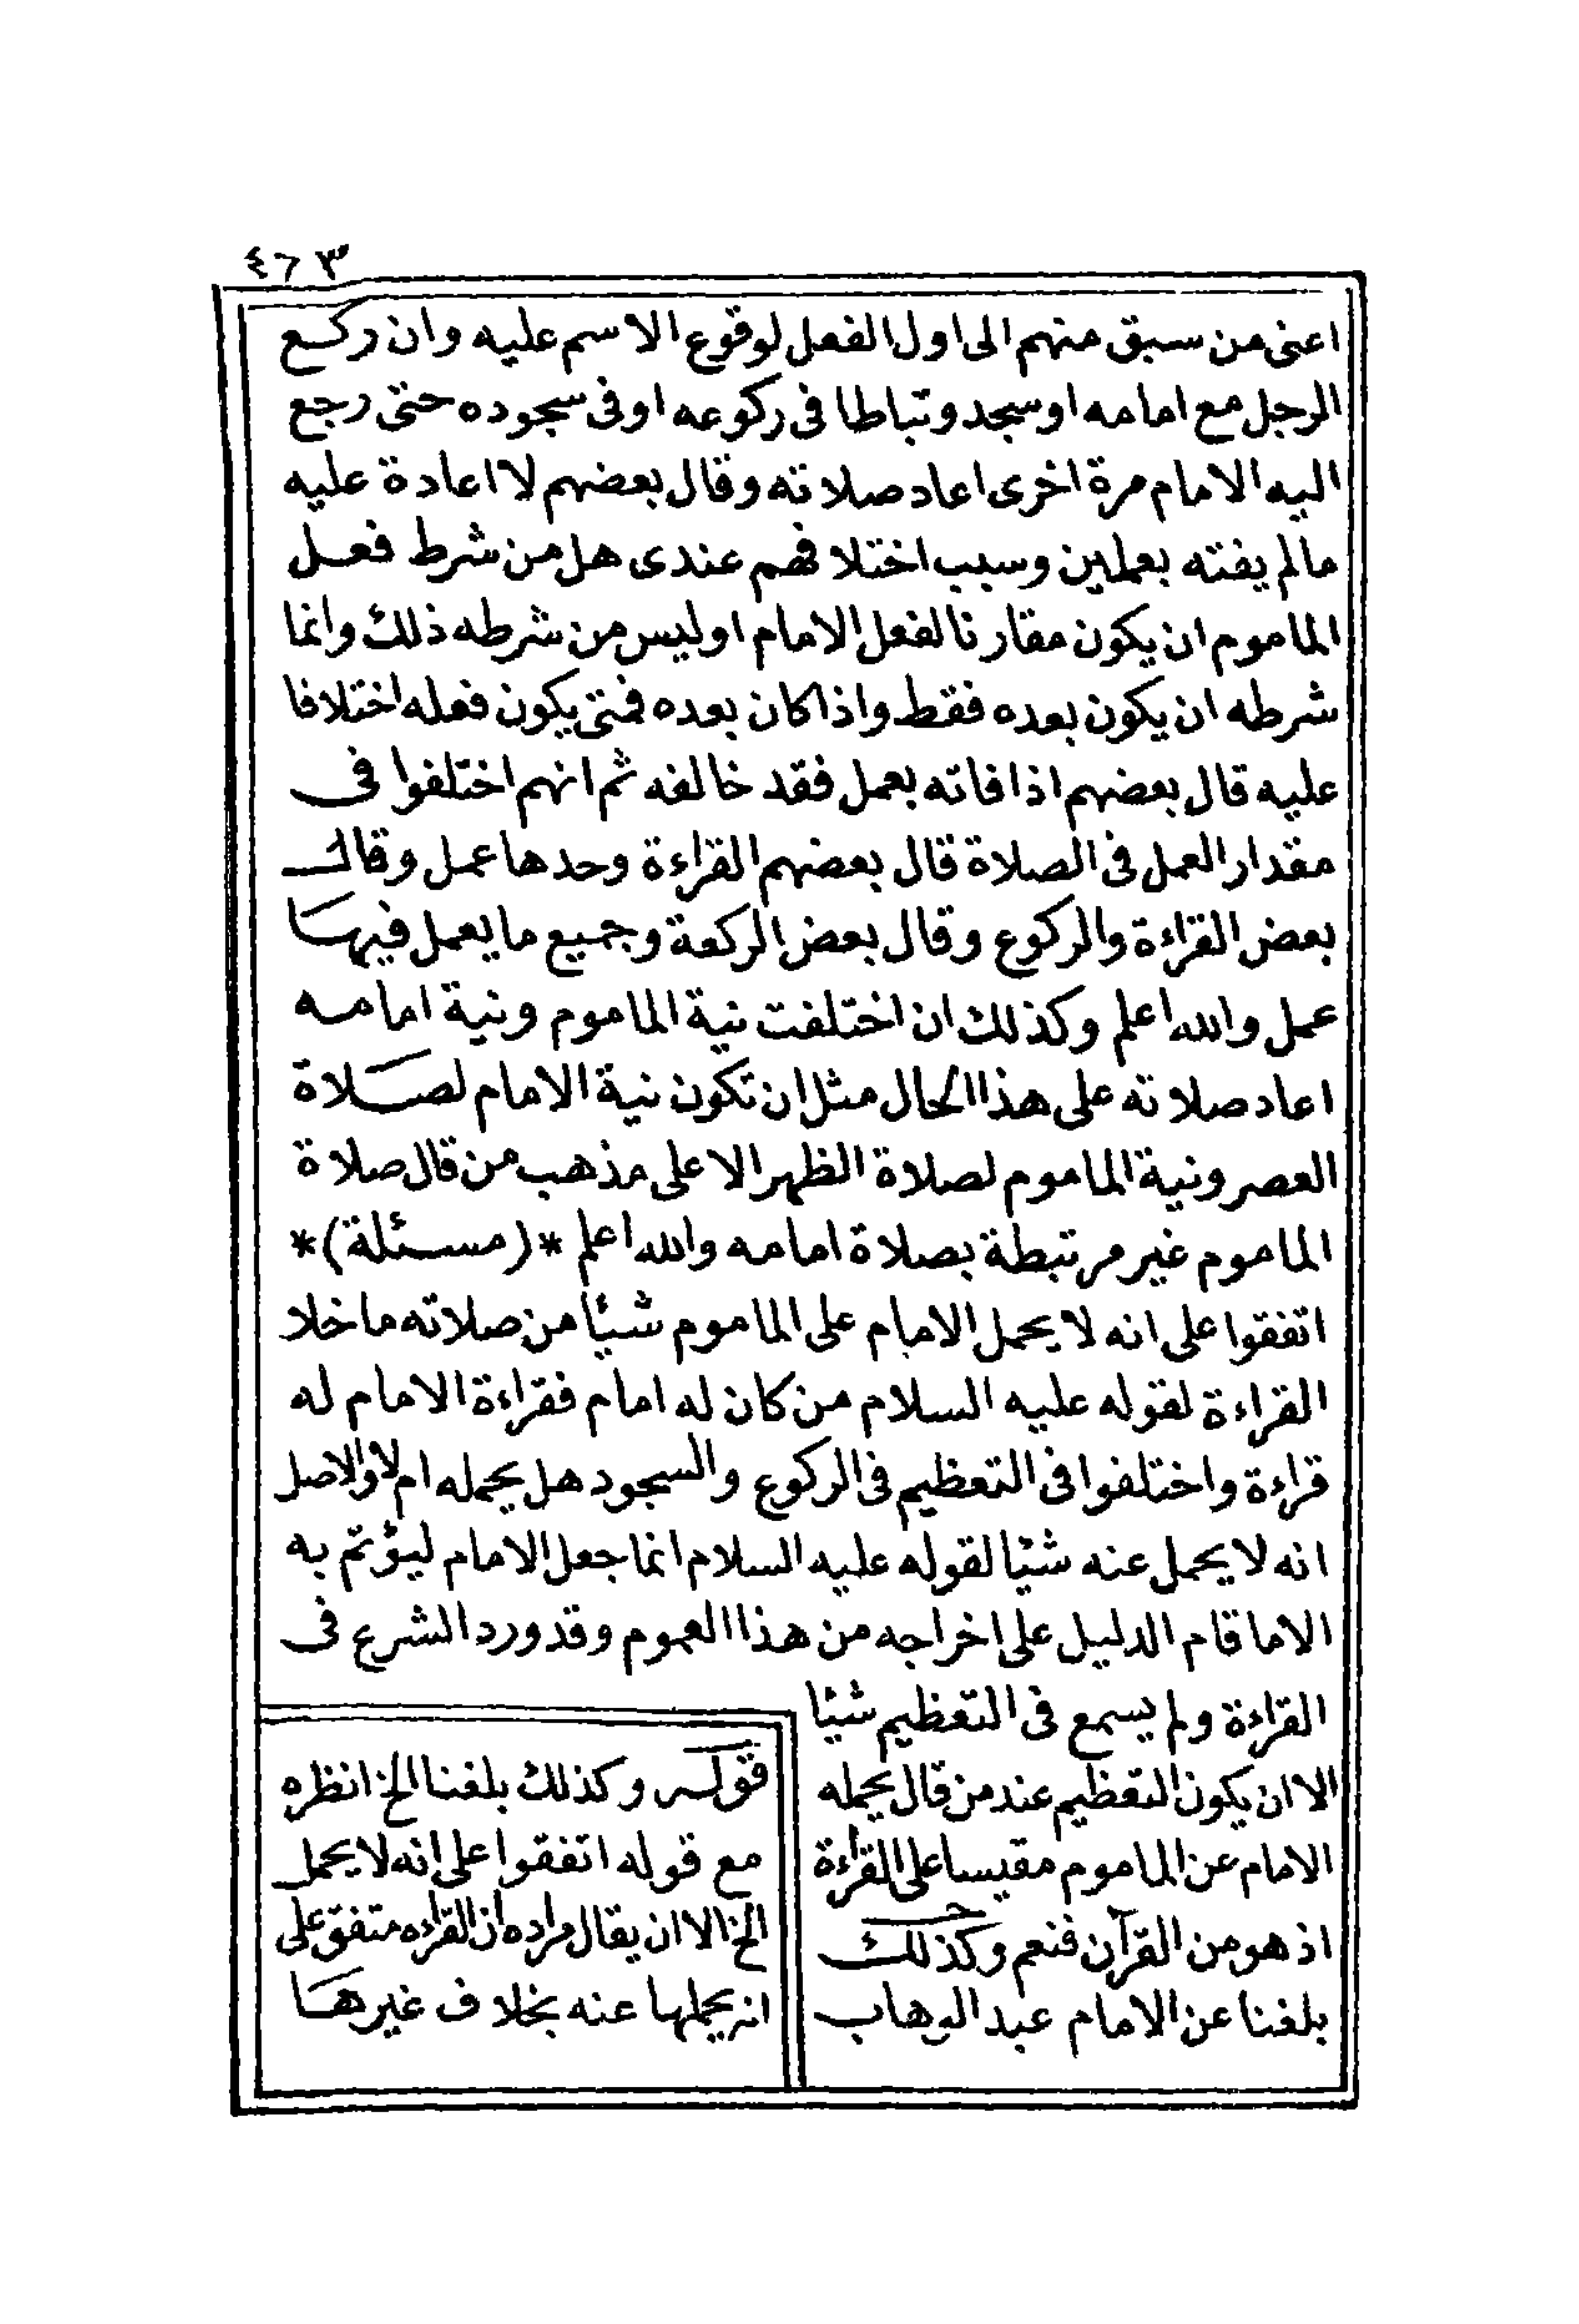 ٤٦٣
اعنى من سبق منهم الى اول الفعل لوقوع الاسم عليه وان ركع
الرجل مع امامه او سجد وتباطا فى ركوعه او فى سجوده حتى رجع
اليه الامام مرة اخرى اعاد صلاته وقال بعضهم لا اعادة عليه
مالم يفته بعملين وسبب اختلافهم عندى هل من شرط فعل
الماموم ان يكون مقارنا لفعل الامام او ليس من شرطه ذلك وانما
شرطه ان يكون بعده فقط واذا كان بعده فمتى يكون فعله اختلافا
عليه قال بعضهم اذا فاته بعمل فقد خالفه ثم انهم اختلفوا فى
مقدار العمل فى الصلاة قال بعضهم القراءة وحدها عمل وقال
بعض القراءة والركوع وقال بعض الركعة وجميع ما يعمل فيها
عمل والله اعلم وكذلك ان اختلفت نية الماموم ونية امامه
اعاد صلاته على هذا الحال مثل ان تكون نية الامام لصلاة
العصر ونية الماموم لصلاة الظهر الا على مذهب من قال صلاة
الماموم غير مرتبطة بصلاة امامه والله اعلم *(مسئلة)*
اتفقوا على انه لا يحمل الامام على الماموم شيئا من صلاته ما خلا
القراءة لقوله عليه السلام من كان له امام فقراءة الامام له
قراءة واختلفوا فى التعظيم فى الركوع والسجود هل يحمله ام لا والاصل
انه لا يحمل عنه شيئا لقوله عليه السلام انما جعل الامام ليؤتم به
الا ما قام الدليل على اخراجه من هذا العموم وقد ورد الشرع فى
القراءة ولم يسمع فى التعظيم شيئا
الا ان يكون التعظيم عند من قال يحمله
الامام عن الماموم مقيسا على القراءة
اذ هو من القرآن فنعم وكذلك
بلغنا عن الامام عبد الوهاب
قوله وكذلك بلغنا الخ انظره
مع قوله اتفقوا على انه لا يحمل
الخ الا ان يقال مراده ان القراءه متفق على
انه يحملها عنه بخلاف غيرها